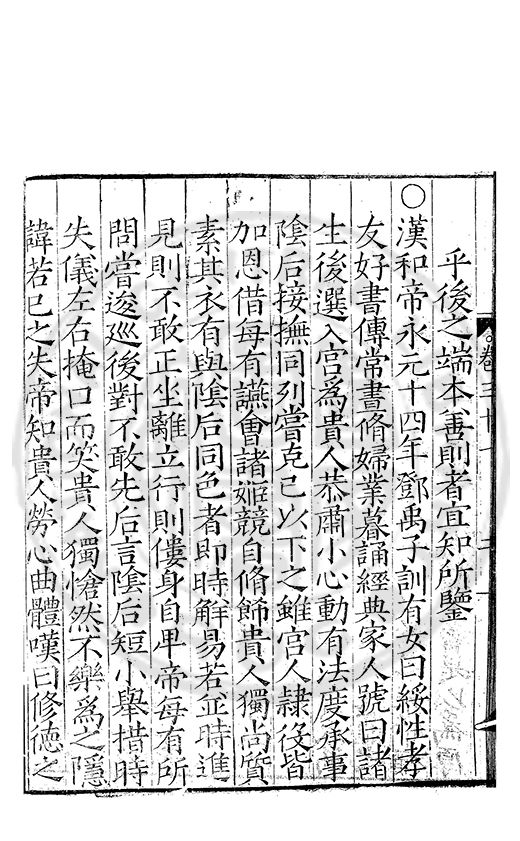 乎後之端本善則者宜知所鑒
○漢和帝永元十四年鄧禹子訓有女曰綏性孝
友好書傳常晝脩婦業暮誦經典家人號曰諸
生後選入宮爲貴人恭肅小心動有法度承事
陰后接撫同列嘗克己以下之雖宮人隷役皆
加恩借每有讌會諸姬競自脩飾貴人獨尚質
素其衣有與陰后同色者即時解易若並時進
見則不敢正坐離立行則僂身自卑帝每有所
問嘗逡巡後對不敢先后言陰后短小舉措時
失儀左右掩口而笑貴人獨愴然不樂爲之隱
諱若已之失帝知貴人勞心曲體嘆曰修德之